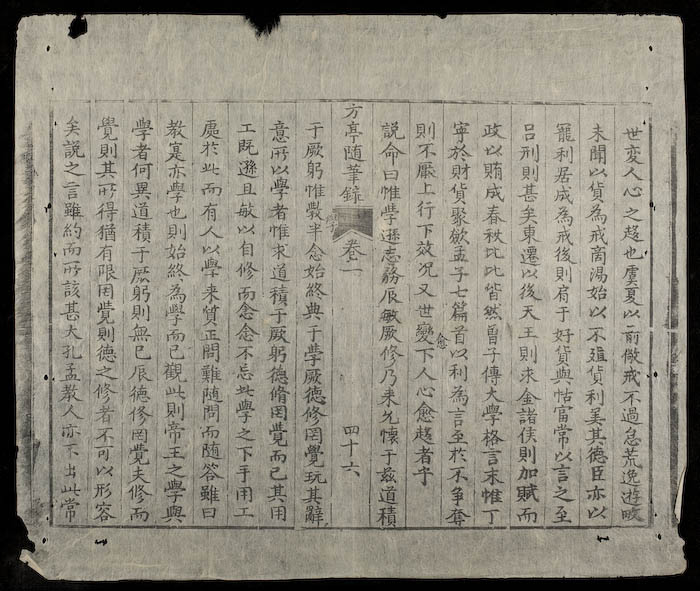 世変人心之趍也虞夏以前儆戒不過怠荒逸遊畋
未聞以貨為戒商湯始以不殖貨利美其德臣亦以
寵利居成為戒後則肩于好貨與怙富常以言之至
吕刑則甚矣東遷以後天王則求金諸侯則加賦而
政以賄成春秋比比皆然曾子傳大學格言末惟丁
寧於財貨聚歛孟子七篇首以利為言至於不争奪
則不厭上行下效况又世變下人心愈趍者乎
愈
説命曰惟學遜志務辰敏厥修乃来允懷于兹道積
方亭随筆錄 卷一 四十六
學
于厥躬惟斅半念始終典于學厥德修罔覺玩其辭
意所以學者惟求道積于厥躬德脩罔覺而已其用
工既遜且敏以自修而念念不忘此學之下手用工
處於此而有人以學来質正問難随問而随答雖曰
教寔亦學也則始終為學而已觀此則帝王之學與
學者何異道積于厥躬則無已辰德修罔覺夫修而
覺則其所得猶有限罔覺則德之修者不可以形容
矣説之言雖約而所該甚大孔孟教人亦不出此常